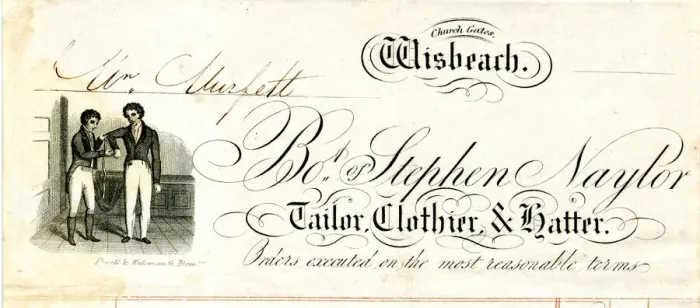 Church Gates.
Wisbeach.
Mr. Murfett
Bot. of Stephen Naylor
Tailor, Clothier, & Hatter.
Orders executed on the most reasonable terms